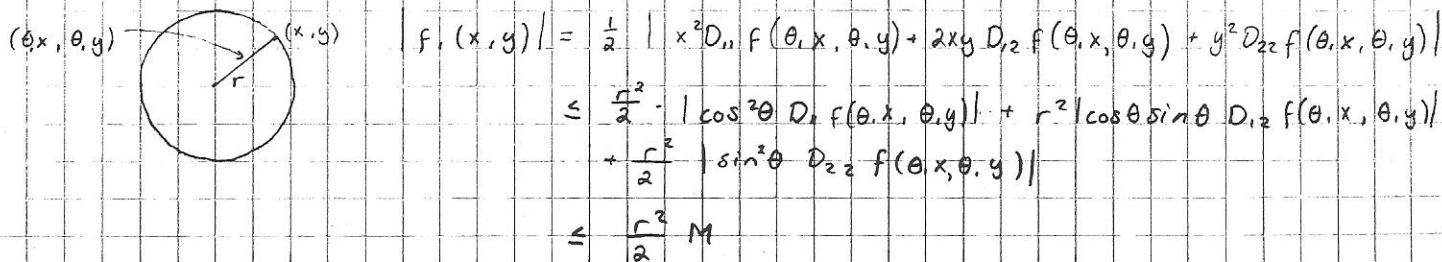 (θ.x, θ.y) (x,y) |f.(x,y)| = ½ | x²D₁₁ f(θ.x, θ.y) + 2xy D₁₂ f(θ.x, θ.y) + y² D₂₂ f(θ.x, θ.y)|
r
≤ r²/2 · |cos²θ D₁ f(θ.x, θ.y)| + r² |cosθ sinθ D₁₂ f(θ.x, θ.y)|
+ r²/2 |sin²θ D₂₂ f(θ.x, θ.y)|
≤ r²/2 M